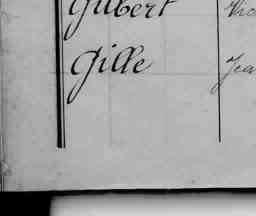 Gilbert
Gille Jea